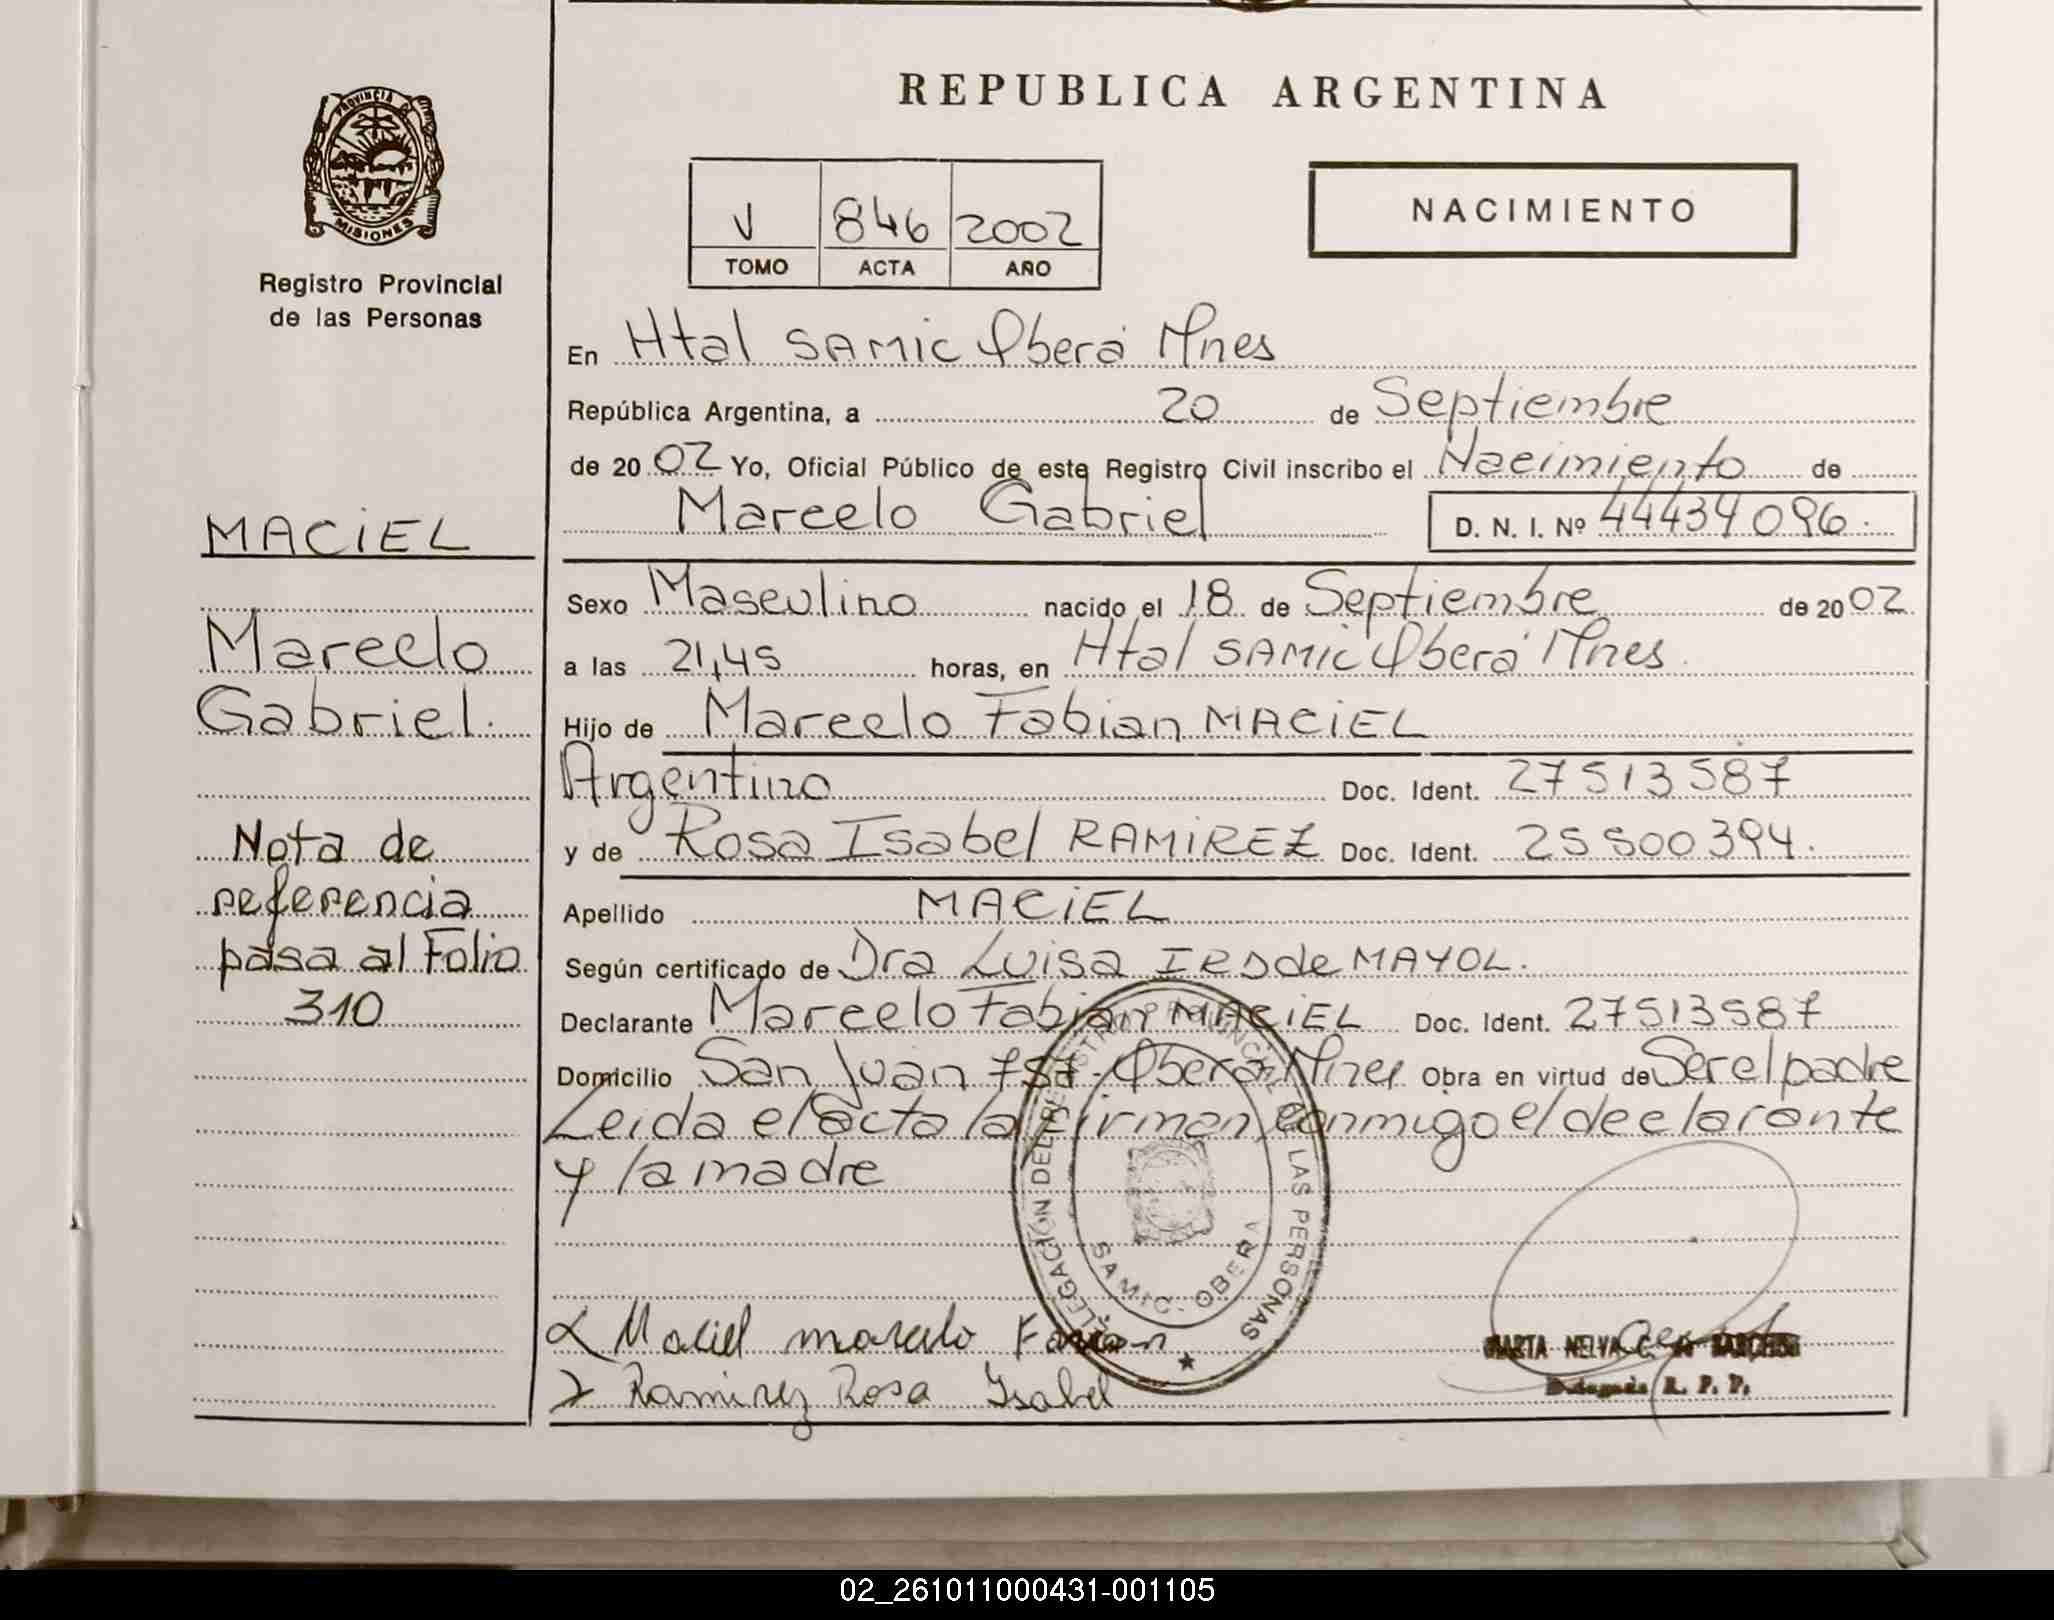 REPUBLICA ARGENTINA
PROVINCIA DE
MISIONES
Registro Provincial
de las Personas
V 846 2002
TOMO ACTA AÑO
NACIMIENTO
En Htal SAMIC Oberá Mnes
República Argentina, a 20 de Septiembre
de 2002 Yo, Oficial Público de este Registro Civil inscribo el Nacimiento de
Marcelo Gabriel D. N. I. Nº 44434096.
MACIEL
Marcelo
Gabriel.
Nota de
referencia
pasa al Folio
310
Sexo Masculino nacido el 18 de Septiembre de 2002
a las 21,45 horas, en Htal SAMIC Oberá Mnes.
Hijo de Marcelo Fabian MACIEL
Argentino Doc. Ident. 27513587
y de Rosa Isabel RAMIREZ Doc. Ident. 25500394.
Apellido MACIEL
Según certificado de Dra Luisa de MAYOL.
Declarante Marcelo Fabian MACIEL Doc. Ident. 27513587
Domicilio San Juan Oberá Mnes Obra en virtud de Ser el padre
Leida el acta la firman conmigo el declarante
y la madre
DELEGACIÓN DEL REGISTRO PROVINCIAL DE LAS PERSONAS
SAMIC - OBERA
Maciel marcelo Fabian
Ramirez Rosa Isabel
MARTA NELVA C. de
Delegada R. P. P.
02_261011000431-001105